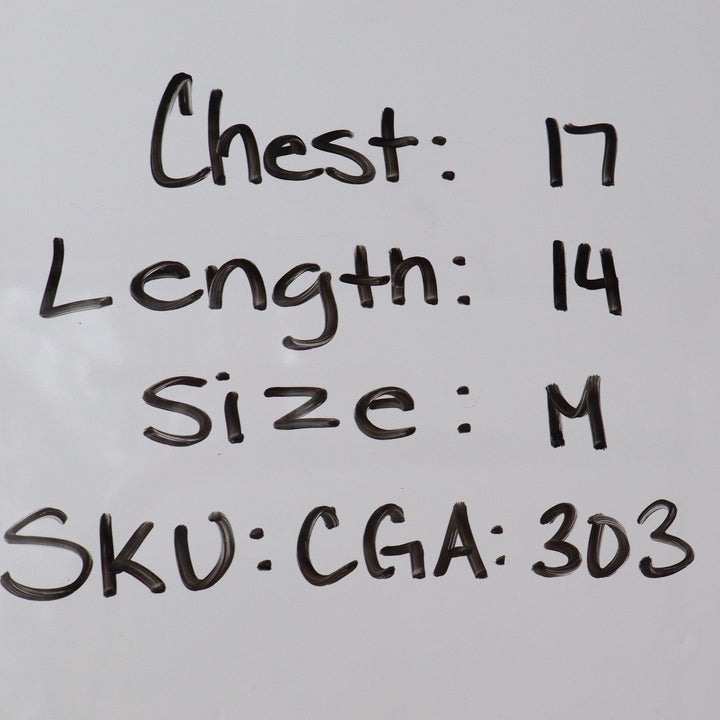 Chest: 17
Length: 14
Size: M
SKU: CGA: 303